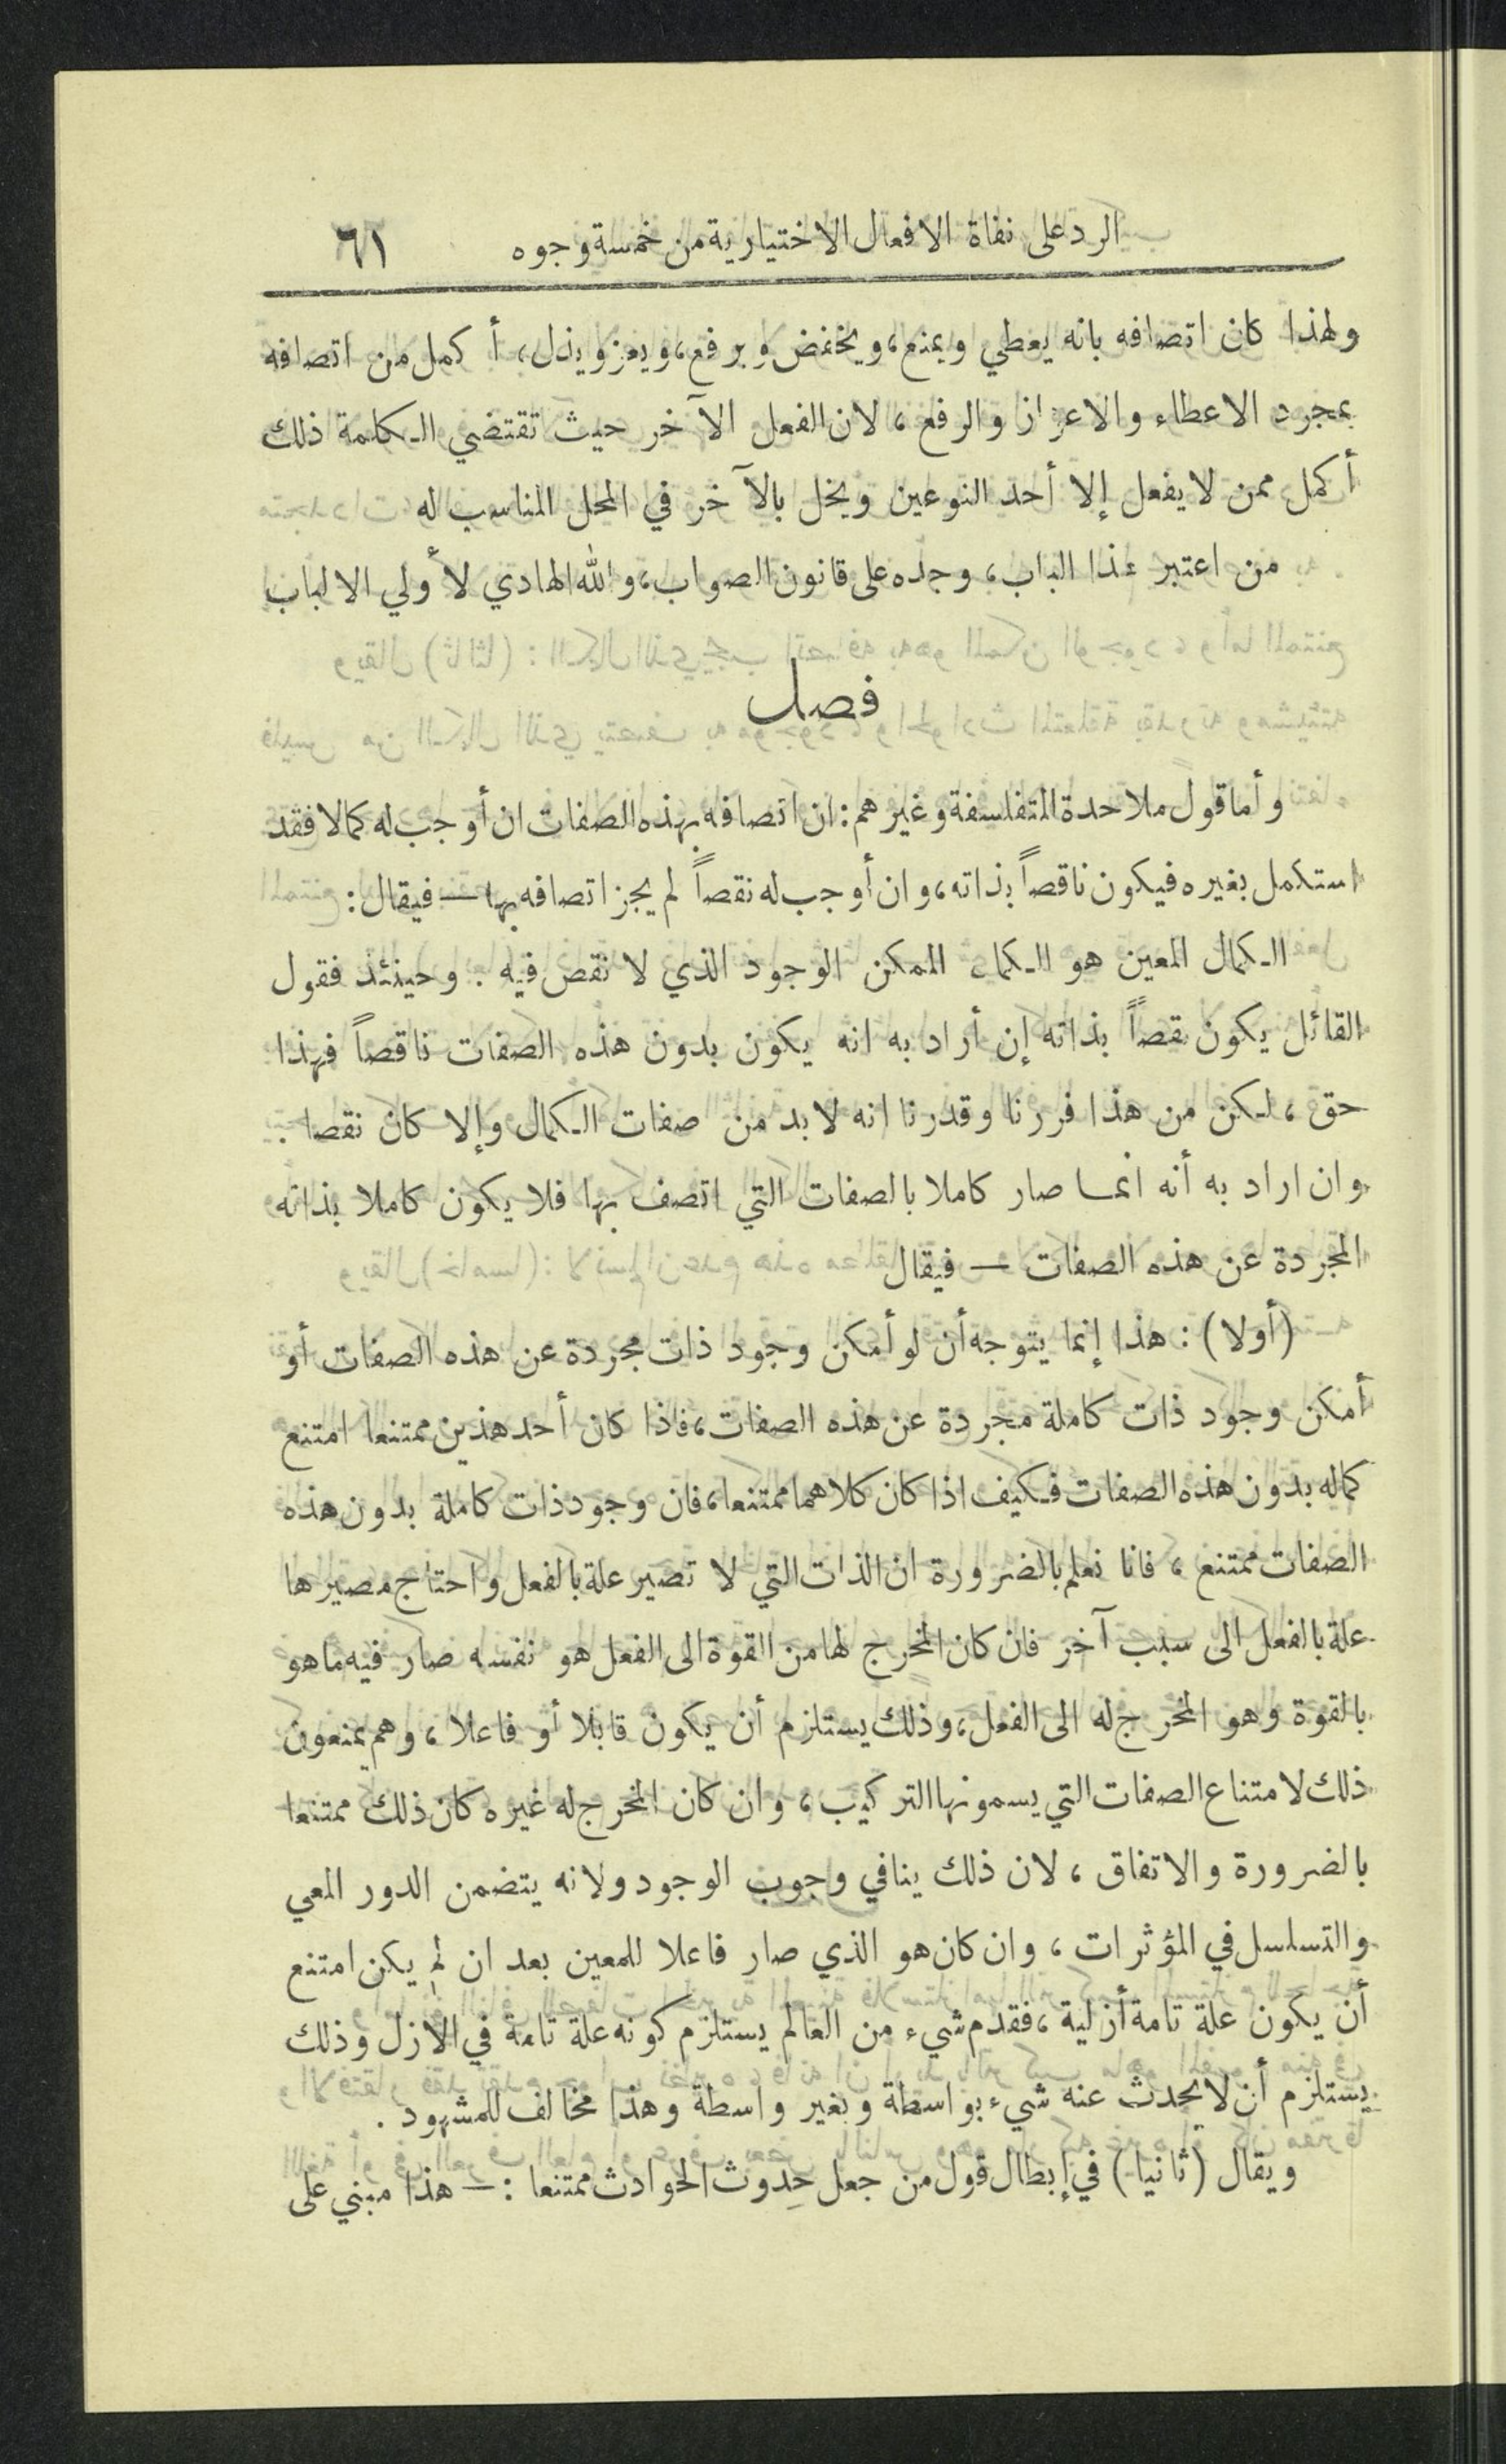 الرد على نفاة الافعال الاختيارية من خمسة وجوه ٦١
ولهذا كان اتصافه بانه يعطي ويمنع، ويخفض ويرفع، ويعز ويذل، أكمل من اتصافه
بمجرد الاعطاء والاعزاز والرفع، لان الفعل الآخر حيث تقتضي الحكمة ذلك
أكمل ممن لا يفعل إلا أحد النوعين ويخل بالآخر في المحل المناسب له
من اعتبر هذا الباب، وجده على قانون الصواب، والله الهادي لأولي الالباب
فصل
وأما قول ملاحدة المتفلسفة وغيرهم: ان اتصافه بهذه الصفات ان أوجب له كمالا فقد
استكمل بغيره فيكون ناقصاً بذاته، وان أوجب له نقصاً لم يجز اتصافه بها — فيقال:
الكمال المعين هو الكمال الممكن الوجود الذي لا نقص فيه. وحينئذ فقول
القائل يكون نقصاً بذاته إن أراد به انه يكون بدون هذه الصفات ناقصاً فهذا
حق، لكن من هذا فررنا وقدرنا انه لا بد من صفات الكمال وإلا كان نقصا.
وان اراد به أنه انما صار كاملا بالصفات التي اتصف بها فلا يكون كاملا بذاته
المجردة عن هذه الصفات — فيقال
(أولا): هذا إنما يتوجه أن لو أمكن وجود ذات مجردة عن هذه الصفات أو
أمكن وجود ذات كاملة مجردة عن هذه الصفات، فاذا كان أحد هذين ممتنعا امتنع
كماله بدون هذه الصفات فكيف اذا كان كلاهما ممتنعا، فان وجود ذات كاملة بدون هذه
الصفات ممتنع، فانا نعلم بالضرورة ان الذات التي لا تصير علة بالفعل واحتاج مصيرها
علة بالفعل الى سبب آخر فان كان المخرج لها من القوة الى الفعل هو نفسه صار فيه ما هو
بالقوة وهو المخرج له الى الفعل، وذلك يستلزم أن يكون قابلا أو فاعلا، وهم يمنعون
ذلك لامتناع الصفات التي يسمونها التركيب، وان كان المخرج له غيره كان ذلك ممتنعا
بالضرورة والاتفاق، لان ذلك ينافي وجوب الوجود ولانه يتضمن الدور المعي
والتسلسل في المؤثرات، وان كان هو الذي صار فاعلا للمعين بعد ان لم يكن امتنع
أن يكون علة تامة أزلية، فقدم شيء من العالم يستلزم كونه علة تامة في الازل وذلك
يستلزم أن لا يحدث عنه شيء بواسطة وبغير واسطة وهذا مخالف للمشهود.
ويقال (ثانيا) في إبطال قول من جعل حدوث الحوادث ممتنعا: — هذا مبني على